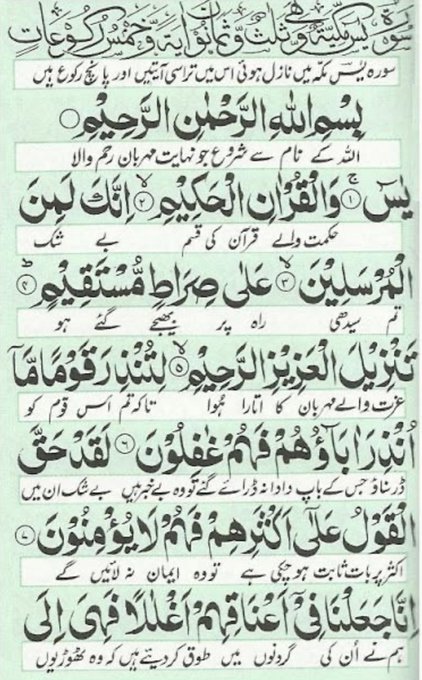 سورۃ یٰسٓ مکیۃ وھی ثلث و ثمانون ایۃ وخمس رکوعات
سورہ یٰسٓ مکہ میں نازل ہوئی اس میں تراسی آیتیں اور پانچ رکوع ہیں
بِسْمِ اللهِ الرَّحْمٰنِ الرَّحِیْمِ
اللہ کے نام سے شروع جو نہایت مہربان رحم والا
یٰسٓ ﴿۱﴾ۚ وَالْقُرْاٰنِ الْحَكِیْمِ ﴿۲﴾ۙ اِنَّكَ لَمِنَ
حکمت والے قرآن کی قسم بے شک
الْمُرْسَلِیْنَ ﴿۳﴾ۙ عَلٰی صِرَاطٍ مُّسْتَقِیْمٍ ﴿۴﴾ؕ
تم سیدھی راہ پر بھیجے گئے ہو
تَنْزِیْلَ الْعَزِیْزِ الرَّحِیْمِ ﴿۵﴾ۙ لِتُنْذِرَ قَوْمًا مَّاۤ
عزت والے مہربان کا اتارا ہوا تاکہ تم اس قوم کو
اُنْذِرَ اٰبَآؤُهُمْ فَهُمْ غٰفِلُوْنَ ﴿۶﴾ لَقَدْ حَقَّ
ڈر سناؤ جس کے باپ دادا نہ ڈرائے گئے تو وہ بے خبر ہیں بے شک ان میں
الْقَوْلُ عَلٰۤی اَكْثَرِهِمْ فَهُمْ لَا یُؤْمِنُوْنَ ﴿۷﴾
اکثر پر بات ثابت ہو چکی ہے تو وہ ایمان نہ لائیں گے
اِنَّا جَعَلْنَا فِیْۤ اَعْنَاقِهِمْ اَغْلٰلًا فَهِیَ اِلَی
ہم نے اُن کی گردنوں میں طوق کر دیئے ہیں کہ وہ ٹھوڑیوں